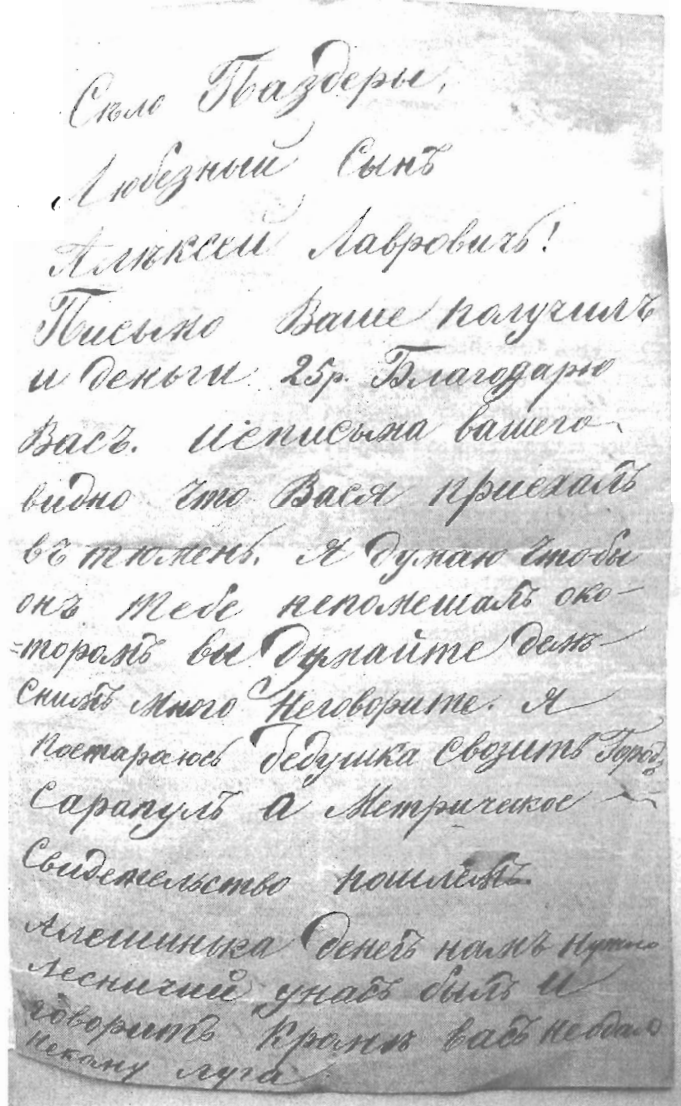 Съло Паздеры,
Любезный Сынъ
Алъксей Лавровичъ!
Письмо Ваше получилъ
и деньги 25р. Благодарю
Васъ. Исписьма вашего
видно что Вася приехалъ
въ тюмень. я думаю чтобы
онъ тебе непомешалъ око-
=торомъ вы думайте
снимъ много неговорите. я
постараюсь свозить Городъ
Сарапулъ а Метрическое
Свидетельство пошлемъ
Алешинька денегъ намъ нужно
лесничий унасъ былъ и
говоритъ Кромъ васъ
некому луга